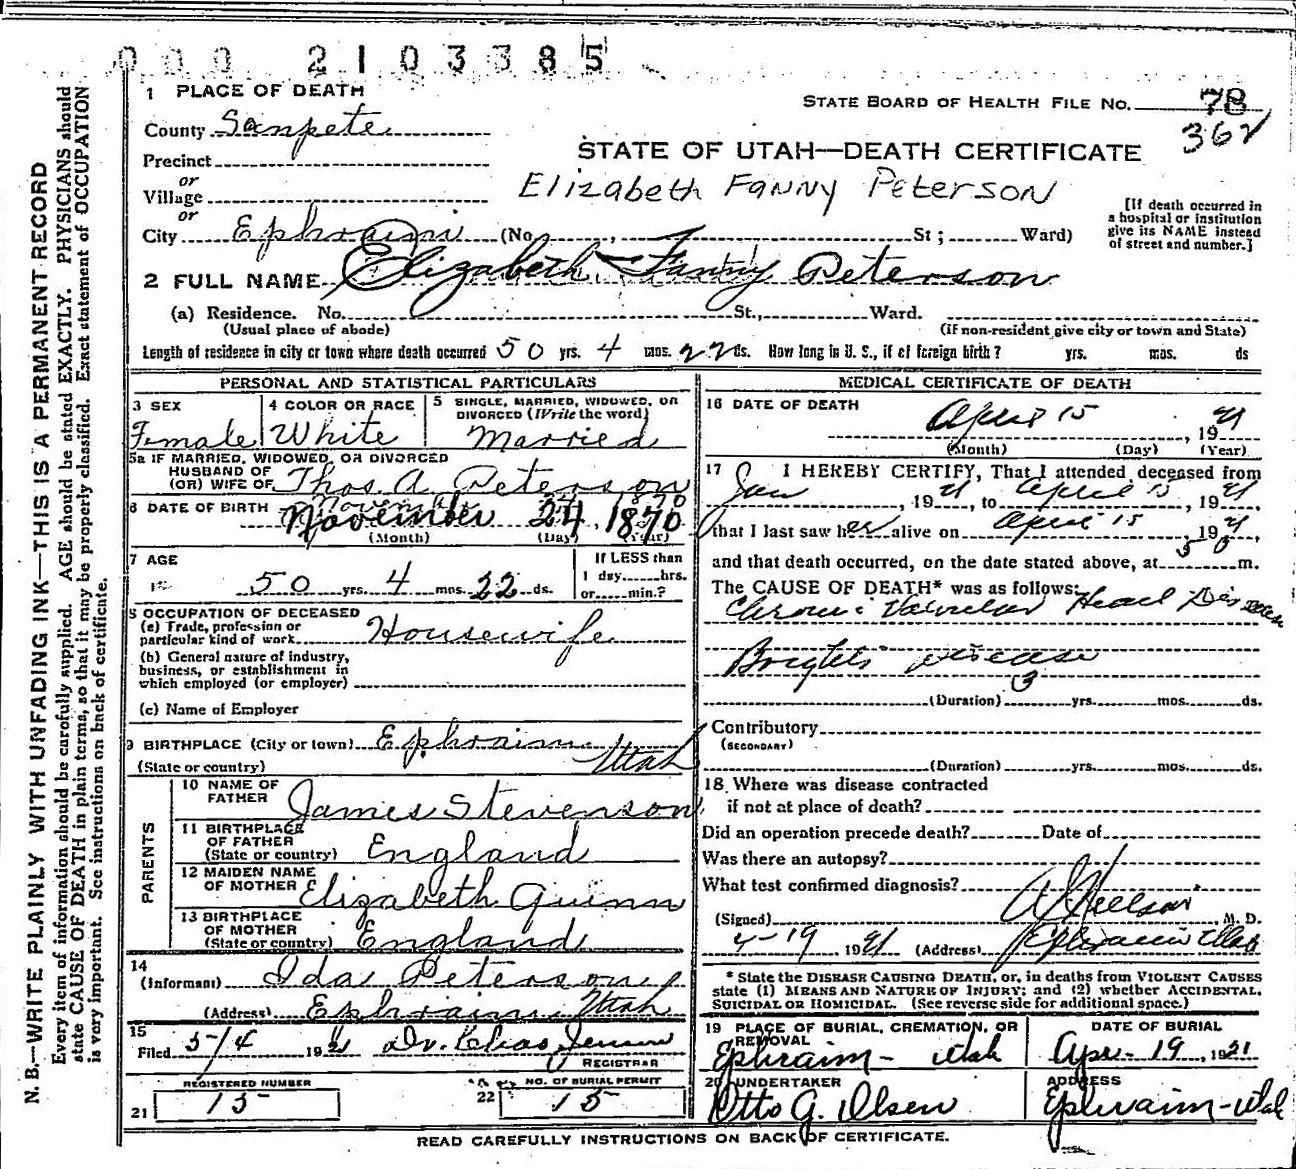 000 2103385
1 PLACE OF DEATH
STATE BOARD OF HEALTH FILE NO. 78
362
County Sanpete
STATE OF UTAH—DEATH CERTIFICATE
Precinct
or
Village
Elizabeth Fanny Peterson
or
City Ephraim (No. , St ; Ward)
[If death occurred in a hospital or institution give its NAME instead of street and number.]
2 FULL NAME Elizabeth Fanny Peterson
(a) Residence. No. St., Ward.
(Usual place of abode) (If non-resident give city or town and State)
Length of residence in city or town where death occurred 50 yrs. 4 mos. 22 ds. How long in U. S., if of foreign birth? yrs. mos. ds
PERSONAL AND STATISTICAL PARTICULARS
3 SEX
Female
4 COLOR OR RACE
White
5 SINGLE, MARRIED, WIDOWED, OR DIVORCED (Write the word)
Married
5a IF MARRIED, WIDOWED, OR DIVORCED
HUSBAND OF
(OR) WIFE OF Thos. A. Peterson
6 DATE OF BIRTH November 24, 1870
(Month) (Day) (Year)
7 AGE
50 yrs. 4 mos. 22 ds.
If LESS than
1 day hrs.
or min.?
8 OCCUPATION OF DECEASED
(a) Trade, profession or
particular kind of work Housewife
(b) General nature of industry,
business, or establishment in
which employed (or employer)
(c) Name of Employer
9 BIRTHPLACE (City or town) Ephraim
(State or country) Utah
PARENTS
10 NAME OF FATHER James Stevenson
11 BIRTHPLACE OF FATHER
(State or country) England
12 MAIDEN NAME OF MOTHER Elizabeth Quinn
13 BIRTHPLACE OF MOTHER
(State or country) England
14
(Informant) Ida Peterson
(Address) Ephraim, Utah
15
Filed 5/4 1921 Dr. Jensen
REGISTRAR
REGISTERED NUMBER
21 15
NO. OF BURIAL PERMIT
22 15
MEDICAL CERTIFICATE OF DEATH
16 DATE OF DEATH
April 15, 1921
(Month) (Day) (Year)
17 I HEREBY CERTIFY, That I attended deceased from
Jan, 1921, to April 15, 1921
that I last saw her alive on April 15, 1921,
and that death occurred, on the date stated above, at m.
The CAUSE OF DEATH* was as follows:
Chronic Valvular Heart Disease
Brights disease
(Duration) 3 yrs. mos. ds.
Contributory
(SECONDARY)
(Duration) yrs. mos. ds.
18 Where was disease contracted
if not at place of death?
Did an operation precede death? Date of
Was there an autopsy?
What test confirmed diagnosis?
(Signed) M. D.
4-19 1921 (Address) Ephraim Utah
* State the DISEASE CAUSING DEATH, or, in deaths from VIOLENT CAUSES
state (1) MEANS AND NATURE OF INJURY; and (2) whether ACCIDENTAL,
SUICIDAL OR HOMICIDAL. (See reverse side for additional space.)
19 PLACE OF BURIAL, CREMATION, OR REMOVAL
Ephraim - Utah
DATE OF BURIAL
Apr - 19, 1921
20 UNDERTAKER
Otto G. Olsen
ADDRESS
Ephraim - Utah
READ CAREFULLY INSTRUCTIONS ON BACK OF CERTIFICATE.
N. B.—WRITE PLAINLY WITH UNFADING INK—THIS IS A PERMANENT RECORD
Every item of information should be carefully supplied. AGE should be stated EXACTLY. PHYSICIANS should
state CAUSE OF DEATH in plain terms, so that it may be properly classified. Exact statement of OCCUPATION
is very important. See instructions on back of certificate.